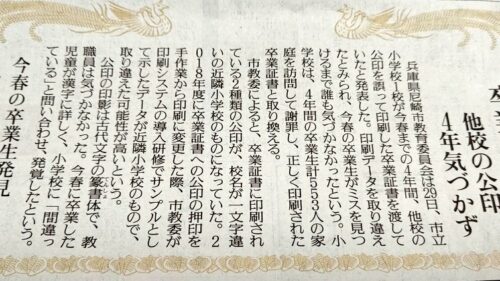 他校の公印
4年気づかず
兵庫県尼崎市教育委員会は29日、市立
小学校1校が今春までの4年間、他校の
公印を誤って印刷した卒業証書を渡して
いたと発表した。印刷データを取り違え
たとみられ、今春の卒業生がミスを見つ
けるまで誰も気づかなかったという。小
学校は、4年間の卒業生計553人の家
庭を訪問して謝罪し、正しく印刷された
卒業証書と取り換える。
市教委によると、卒業証書に印刷され
ている2種類の公印が、校名が一文字違
いの近隣小学校のものになっていた。2
018年度に卒業証書への公印の押印を
手作業から印刷に変更した際、市教委が
印刷システムの導入研修でサンプルとし
て示したデータが近隣小学校のもので、
取り違えた可能性が高いという。
公印の印影は古代文字の篆書体で、教
職員は気づかなかった。今春に卒業した
児童が漢字に詳しく、小学校に「間違っ
ている」と問い合わせ、発覚したという。
今春の卒業生発見